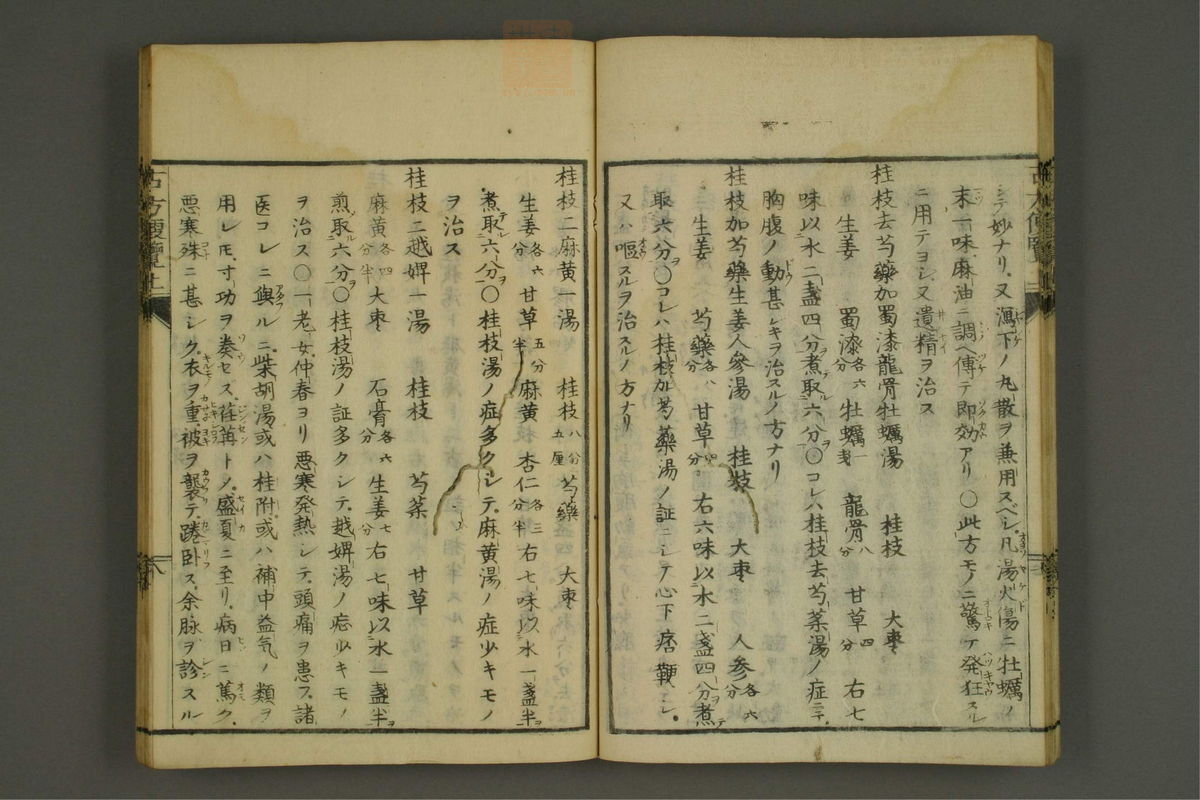 ニテ妙ナリ又渢下ノ丸散ヲ兼用スベシ凡湯火傷ニ牡蠣ノ
末一味麻油ニ調ヘ傅テ即効アリ〇此方モノニ驚ケ発狂スル
ニ用テヨシ又遺精ヲ治ス
桂枝去芍藥加蜀漆龍骨牡蠣湯 桂枝 大棗
生姜 蜀漆各六分 牡蠣一戔 龍骨八分 甘草四分 右七
味以水二盞四分煮取六分〇コレハ桂枝去芍薬湯ノ症ニテ
胸腹ノ動甚シキヲ治スルノ方ナリ
桂枝加芍藥生姜人參湯 桂枝 大棗 人参各六分
生姜 芍藥各八分 甘草四分 右六味以水二盞四分煮
取六分〇コレハ桂枝加芍藥湯ノ証ニシテ心下痞鞕シ
又ハ嘔スルヲ治スルノ方ナリ
桂枝二麻黄一湯 桂枝八分五厘 芍藥 大棗
生姜各六分 甘草五分半 麻黄 杏仁各三分半 右七味以水一盞半
煮取六分〇桂枝湯ノ症多クシテ麻黄湯ノ症少キモノ
ヲ治ス
桂枝二越婢一湯 桂枝 芍薬 甘草
麻黄各四分半 大棗 石膏各六分 生姜七分 右七味以水一盞半
煎取六分〇桂枝湯ノ証多クシテ越婢湯ノ症少キモノ
ヲ治ス〇一老女仲春ヨリ悪寒発熱シテ頭痛ヲ患フ諸
医コレニ與ルニ柴胡湯或ハ桂附或ハ補中益気ノ類ヲ
用レ𪜈寸功ヲ奏セス荏苒トメ盛夏ニ至リ病日ニ篤ク
悪寒殊ニ甚シク衣ヲ重被ヲ襲テ踡卧ス余脉ヲ診スル
古方便覽上
八